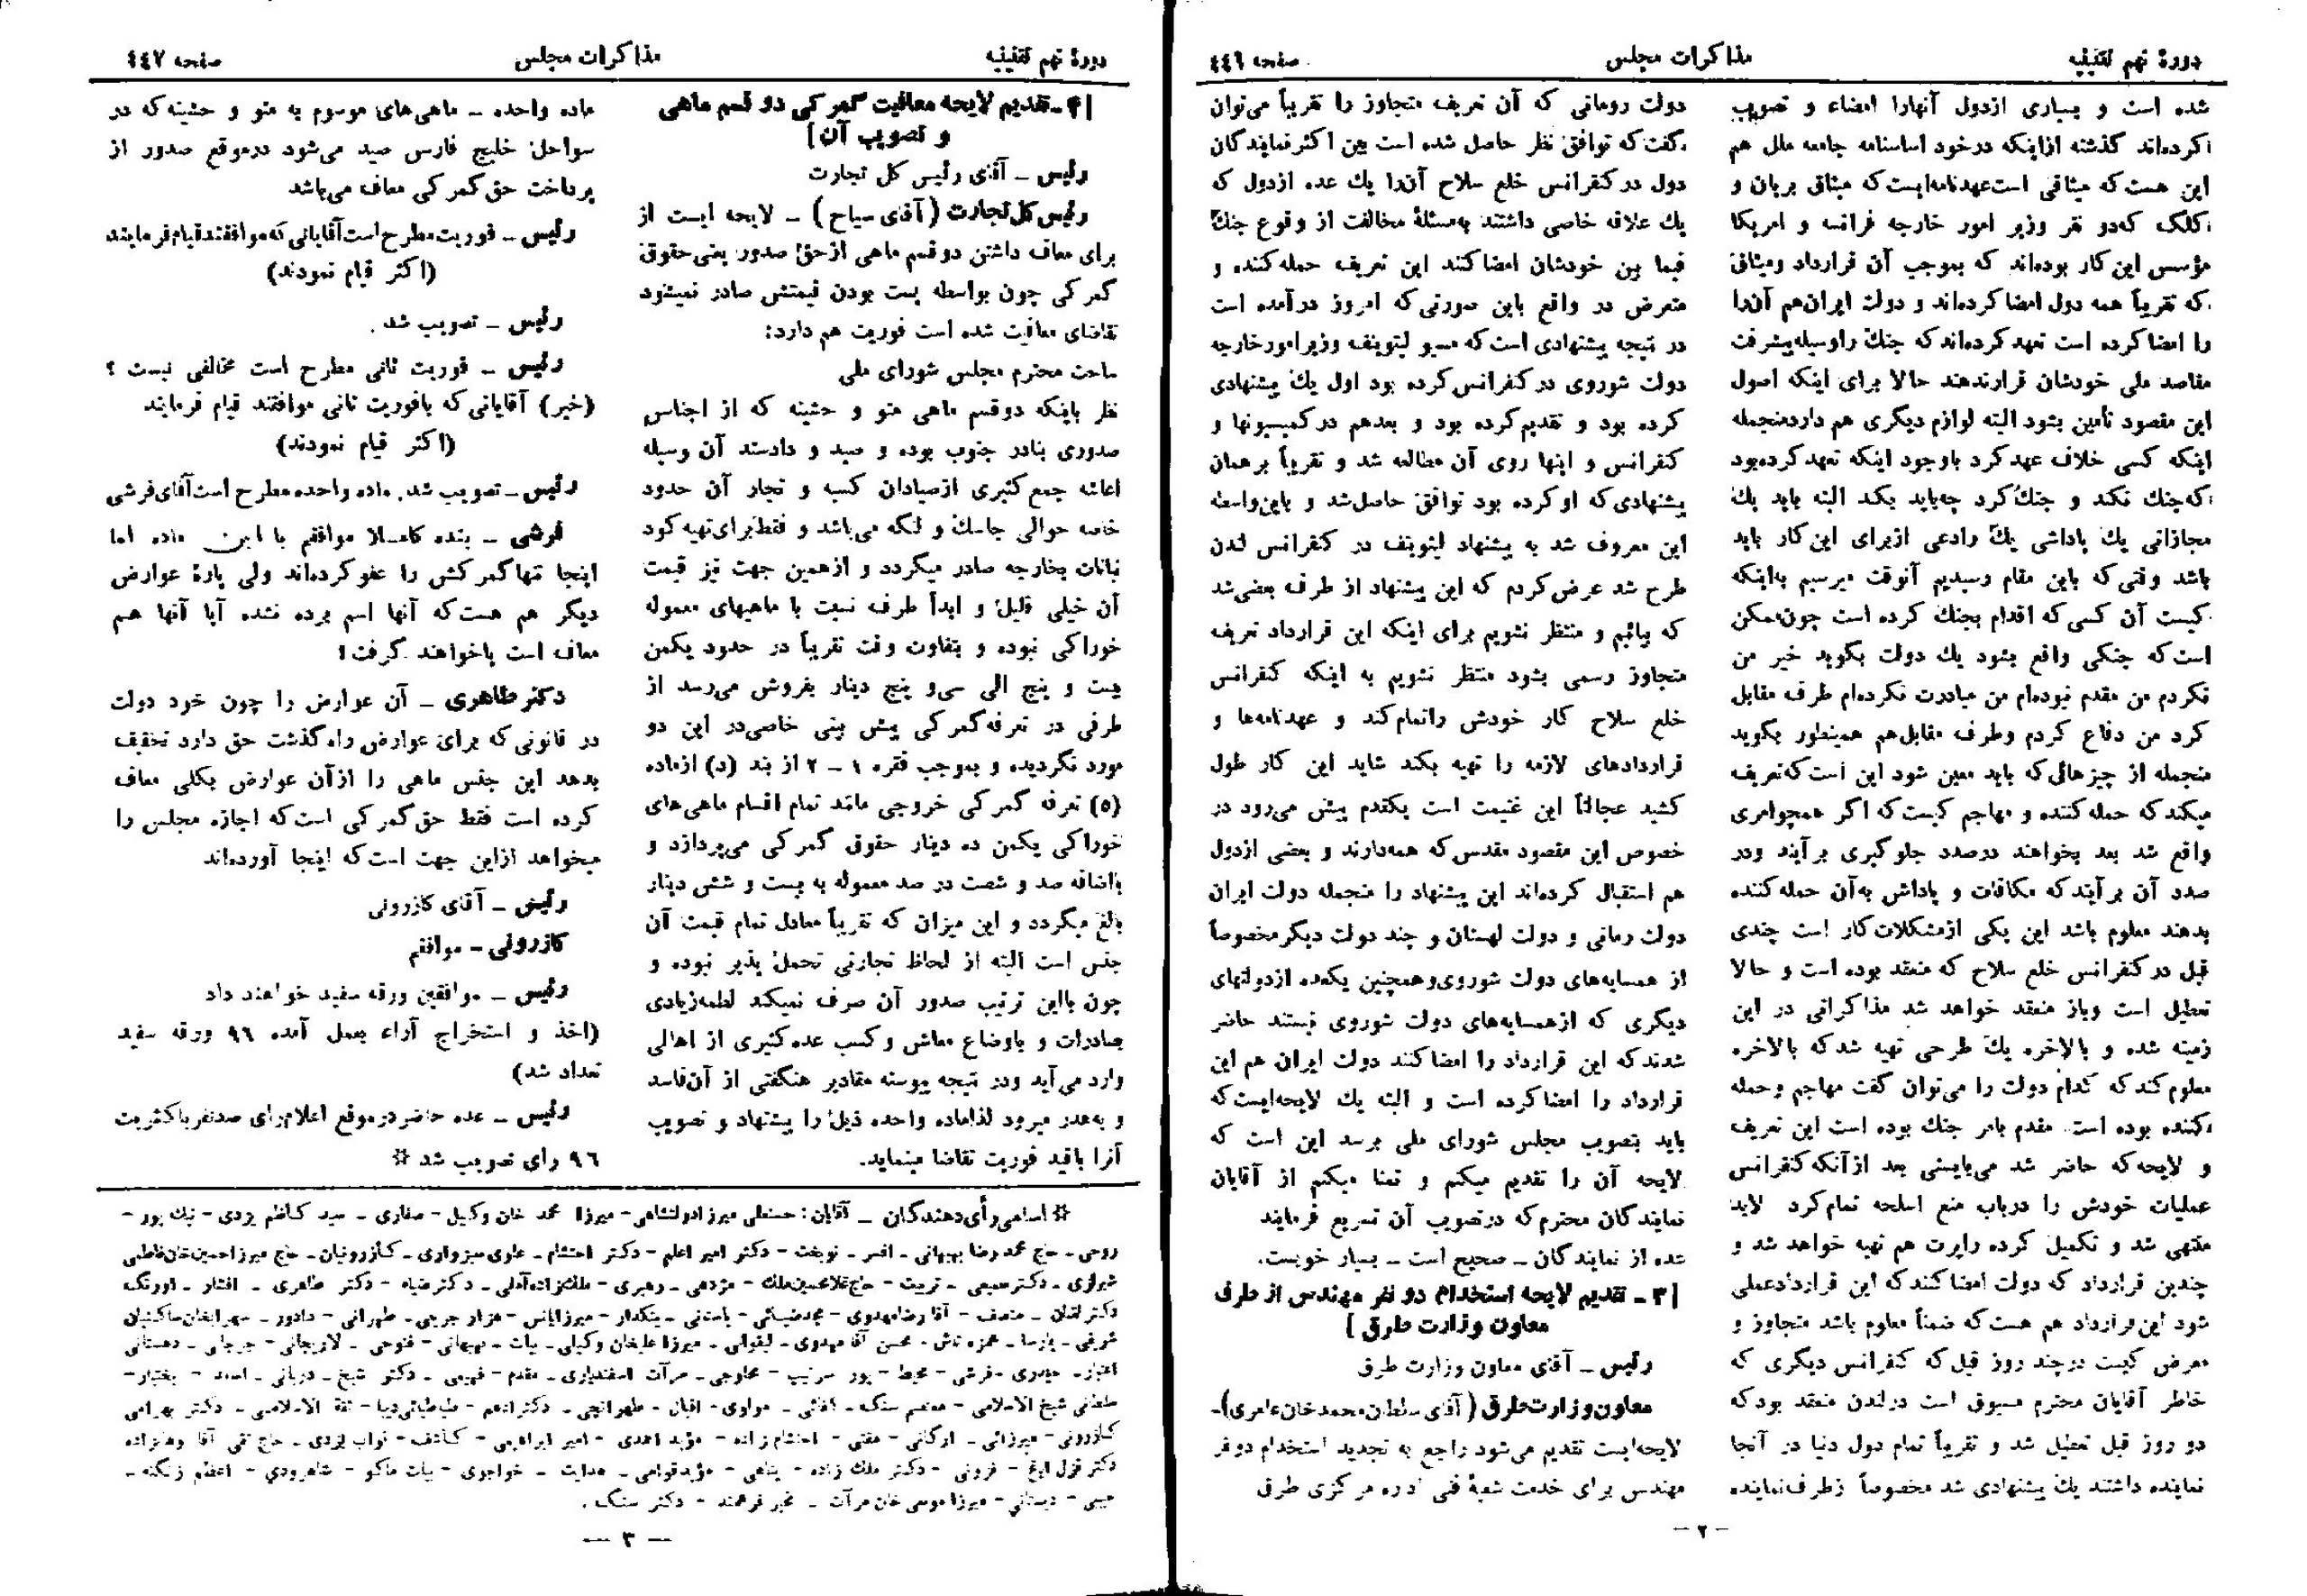 دورهٔ نهم تقنینیه
مذاکرات مجلس
صفحه ٤٤٦
شده است و بسیاری ازدول آنهارا امضاء و تصویب
کرده‌اند گذشته ازاینکه درخود اساسنامه جامعه ملل هم
این هست که میثاقی است عهدنامه‌ایست که میثاق بریان و
کلک که‌دو نفر وزیر امور خارجه فرانسه و امریکا
مؤسس این کار بوده‌اند که بموجب آن قرارداد ومیثاق
که تقریباً همه دول امضا کرده‌اند و دولت ایران‌هم آن‌را
را امضا کرده است تعهد کرده‌اند که جنك راوسیله‌پیشرفت
مقاصد ملی خودشان قرارندهند حالا برای اینکه اصول
این مقصود تأمین بشود البته لوازم دیگری هم داردمنجمله
اینکه کسی خلاف عهد کرد باوجود اینکه تعهد کرده‌بود
که‌جنك نکند و جنك کرد چه‌باید بکند البته باید یك
مجازاتی یك پاداشی یك رادعی ازبرای این کار باید
باشد وقتی که باین مقام رسیدیم آنوقت میرسیم به‌اینکه
کیست آن کسی که اقدام بجنك کرده است چون‌ممکن
است که جنگی واقع بشود یك دولت بگوید خیر من
نکردم من مقدم نبوده‌ام من مبادرت نکرده‌ام طرف مقابل
کرد من دفاع کردم وطرف مقابل‌هم همینطور بگوید
منجمله از چیزهائی که باید معین شود این است که‌تعریف
میکند که حمله کننده و مهاجم کیست که اگر همچوامری
واقع شد بعد بخواهند درصدد جلوگیری برآیند ودر
صدد آن برآیند که مکافات و پاداش به‌آن حمله کننده
بدهند معلوم باشد این یکی ازمشکلات کار است چندی
قبل در کنفرانس خلع سلاح که منعقد بوده است و حالا
تعطیل است وباز منعقد خواهد شد مذاکراتی در این
زمینه شده و بالاخره یك طرحی تهیه شد که بالاخره
معلوم کند که کدام دولت را می‌توان گفت مهاجم وحمله
کننده بوده است مقدم بامر جنك بوده است این تعریف
و لایحه که حاضر شد می‌بایستی بعد ازآنکه کنفرانس
عملیات خودش را درباب منع اسلحه تمام کرد لابد
منتهی شد و تکمیل کرده راپرت هم تهیه خواهد شد و
چندین قرارداد که دولت امضا کند که این قراردادعملی
شود این قرارداد هم هست که ضمناً معلوم باشد متجاوز و
معرض کیست درچند روز قبل که کنفرانس دیگری که
خاطر آقایان محترم مسبوق است درلندن منعقد بود که
دو روز قبل تعطیل شد و تقریباً تمام دول دنیا در آنجا
نماینده داشتند یك پیشنهادی شد مخصوصاً زطرف‌نماینده
دولت رومانی که آن تعریف متجاوز را تقریباً می‌توان
گفت که توافق نظر حاصل شده است بین اکثر نمایندگان
دول در کنفرانس خلع سلاح آن‌را یك عده ازدول که
یك علاقه خاصی داشتند به‌مسئلهٔ مخالفت از وقوع جنك
فیما بین خودشان امضا کنند این تعریف حمله کننده و
متعرض در واقع باین صورتی که امروز درآمده است
در نتیجه پیشنهادی است که مسیو لیتوینف وزیرامورخارجه
دولت شوروی در کنفرانس کرده بود اول یك پیشنهادی
کرده بود و تقدیم کرده بود و بعدهم در کمیسیونها و
کنفرانس و اینها روی آن مطالعه شد و تقریباً برهمان
پیشنهادی که او کرده بود توافق حاصل‌شد و باین‌واسطه
این معروف شد به پیشنهاد لیتوینف در کنفرانس لندن
طرح شد عرض کردم که این پیشنهاد از طرف بعضی‌شد
که بیائیم و منتظر نشویم برای اینکه این قرارداد تعریف
متجاوز رسمی بشود منتظر نشویم به اینکه کنفرانس
خلع سلاح کار خودش راتمام کند و عهدنامه‌ها و
قراردادهای لازمه را تهیه بکند شاید این کار طول
کشید عجالتاً این غنیمت است یکقدم پیش می‌رود در
خصوص این مقصود مقدس که همه‌دارند و بعضی ازدول
هم استقبال کرده‌اند این پیشنهاد را منجمله دولت ایران
دولت رمانی و دولت لهستان و چند دولت دیگرمخصوصاً
از همسایه‌های دولت شوروی‌وهمچنین یکعده ازدولتهای
دیگری که ازهمسایه‌های دولت شوروی نیستند حاضر
شدند که این قرارداد را امضا کنند دولت ایران هم این
قرارداد را امضا کرده است و البته یك لایحه‌ایست که
باید بتصویب مجلس شورای ملی برسد این است که
لایحه آن را تقدیم میکنم و تمنا میکنم از آقایان
نمایندگان محترم که درتصویب آن تسریع فرمایند
عده از نمایندگان ـ صحیح است ـ بسیار خوبست.
[٣ ـ تقدیم لایحه استخدام دو نفر مهندس از طرف
معاون وزارت طرق]
رئیس ـ آقای معاون وزارت طرق
معاون وزارت‌طرق (آقای سلطان‌محمدخان‌عامری)ـ
لایحه‌ایست تقدیم می‌شود راجع به تجدید استخدام دونفر
مهندس برای خدمت شعبهٔ فنی اداره مرکزی طرق
ـ ٢ ـ
دورهٔ نهم تقنینیه
مذاکرات مجلس
صفحه ٤٤٧
[٤ـتقدیم لایحه معافیت گمرکی دو قسم ماهی
و تصویب آن]
رئیس ـ آقای رئیس کل تجارت
رئیس‌کل‌تجارت (آقای سیاح) ـ لایحه ایست از
برای معاف داشتن دوقسم ماهی ازحق صدور یعنی‌حقوق
گمرکی چون بواسطه پست بودن قیمتش صادر نمیشود
تقاضای معافیت شده است فوریت هم دارد:
ساحت محترم مجلس شورای ملی
نظر باینکه دوقسم ماهی متو و حشینه که از اجناس
صدوری بنادر جنوب بوده و صید و دادستد آن وسیله
اعاشه جمع کثیری ازصیادان کسبه و تجار آن حدود
خاصه حوالی جاسك و لنگه می‌باشد و فقط‌برای‌تهیه کود
نباتات بخارجه صادر میگردد و ازهمین جهت نیز قیمت
آن خیلی قلیل و ابداً طرف نسبت با ماهیهای معموله
خوراکی نبوده و بتفاوت وقت تقریباً در حدود یکمن
بیست و پنج الی سی‌و پنج دینار بفروش می‌رسد از
طرفی در تعرفه گمرکی پیش بینی خاصی‌در این دو
مورد نگردیده و بموجب فقره ١ ـ ٢ از بند (د) ازماده
(٥) تعرفه گمرکی خروجی مانند تمام اقسام ماهی‌های
خوراکی یکمن ده دینار حقوق گمرکی می‌پردازد و
باضافه صد و شصت در صد معموله به بیست و شش دینار
بالغ میگردد و این میزان که تقریباً معادل تمام قیمت آن
جنس است البته از لحاظ تجارتی تحمل پذیر نبوده و
چون بااین ترتیب صدور آن صرف نمیکند لطمه‌زیادی
بصادرات و باوضاع معاش و کسب عده کثیری از اهالی
وارد می‌آید ودر نتیجه پیوسته مقادیر هنگفتی از آن‌فاسد
و به‌هدر میرود لذاماده واحده ذیل را پیشنهاد و تصویب
آنرا باقید فوریت تقاضا مینماید.
ماده واحده ـ ماهی‌های موسوم به متو و حشینه که در
سواحل خلیج فارس صید می‌شود درموقع صدور از
پرداخت حق گمرکی معاف می‌باشد
رئیس ـ فوریت‌مطرح است‌آقایانی که‌موافقندقیام‌فرمایند
(اکثر قیام نمودند)
رئیس ـ تصویب شد.
رئیس ـ فوریت ثانی مطرح است مخالفی نیست ؟
(خیر) آقایانی که بافوریت ثانی موافقند قیام فرمایند
(اکثر قیام نمودند)
رئیس ـ تصویب شد. ماده واحده‌مطرح است‌آقای‌فرشی
فرشی ـ بنده کاملا موافقم با این ماده اما
اینجا تنها گمرکش را عفو کرده‌اند ولی پارهٔ عوارض
دیگر هم هست که آنها اسم برده نشده آیا آنها هم
معاف است یاخواهند گرفت؟
دکتر طاهری ـ آن عوارض را چون خود دولت
در قانونی که برای عوارض راه گذشت حق دارد تخفیف
بدهد این جنس ماهی را ازآن عوارض بکلی معاف
کرده است فقط حق گمرکی است که اجازه مجلس را
میخواهد ازاین جهت است که اینجا آورده‌اند
رئیس ـ آقای کازرونی
کازرونی ـ موافقم
رئیس ـ موافقین ورقه سفید خواهند داد
(اخذ و استخراج آراء بعمل آمده ٩٦ ورقه سفید
تعداد شد)
رئیس ـ عده حاضردرموقع اعلام‌رای صدنفرباکثریت
٩٦ رای تصویب شد *
* اسامی‌رأی‌دهندگان ـ آقایان: حسنعلی میرزادولتشاهی- میرزا محمد خان وکیل - صفاری ـ سید کاظم یزدی - نیك پور -
روحی ـ حاج محمدرضا بهبهانی ـ افسر ـ نوبخت - دکتر امیر اعلم - دکتر احتشام ـ علوی سبزواری ـ کازرونیان ـ حاج میرزاحسین‌خان‌فاطمی
شیرازی ـ دکترسمیعی ـ تربیت - حاج‌غلامحسین‌ملك - مژدهی ـ رهبری - ملك‌زاده‌آملی ـ دکترضیاء - دکتر طاهری ـ افشار ـ اورنگ
دکترلقمان ـ منصف - آقا رضامهدوی - مجدضیائی - یاسائی ـ بنکدار - میرزایانس - هزار جریبی ـ طهرانی - دادور ـ سهرابخان‌ساگینیان
شریفی ـ پارسا ـ حمزه تاش ـ محسن آقا مهدوی ـ لیقوانی ـ میرزا علیخان وکیلی ـ بیات ـ بهبهانی - فتوحی ـ لاریجانی - جرجانی ـ دهستانی
اعتبار ـ حیدری ـ فرشی - محیط - پور سرتیپ - مخاوجی ـ مرآت اسفندیاری ـ مقدم - فهیمی ـ دکتر شیخ ـ دربانی ـ اسعد - بختیار-
سلطانی شیخ الاسلامی - معتصم سنگ ـ آقائی ـ مولوی - اقبال - طهرانچی ـ دکترادهم - طباطبائی‌دیبا - ثقة الاسلامی ـ دکتر بهرامی
کازرونی - میرزائی ـ ارگانی - مفتی - احتشام زاده - مؤید احمدی - امیر ابراهیمی - کاشف - نواب یزدی ـ حاج تقی آقا وهابزاده
دکتر قزل ایاغ - قزوینی - دکتر ملك زاده - پناهی - مؤیدقوامی ـ هدایت - خواجوی - بیات ماکو - شاهرودی - اعظم زنگنه ـ
حبیبی - دبستانی - میرزاموسی خان مرآت ـ مخبر فرهمند - دکتر سنگ .
ـ ٣ ـ